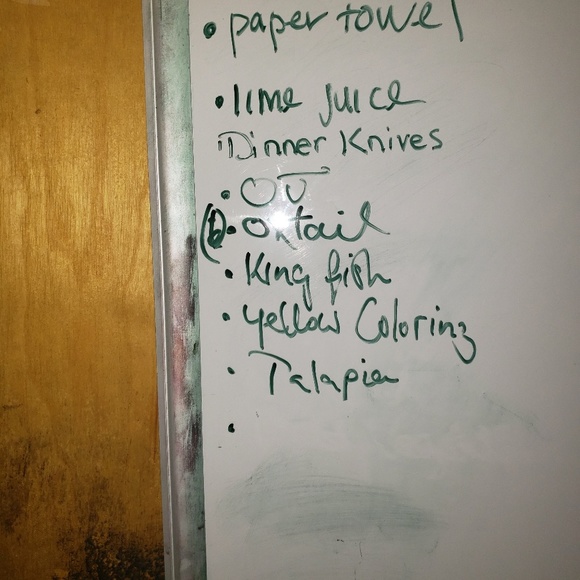 • paper towel
• lime juice
Dinner Knives
• OJ
(6) • oxtail
• King fish
• yellow Coloring
• Talapia
•